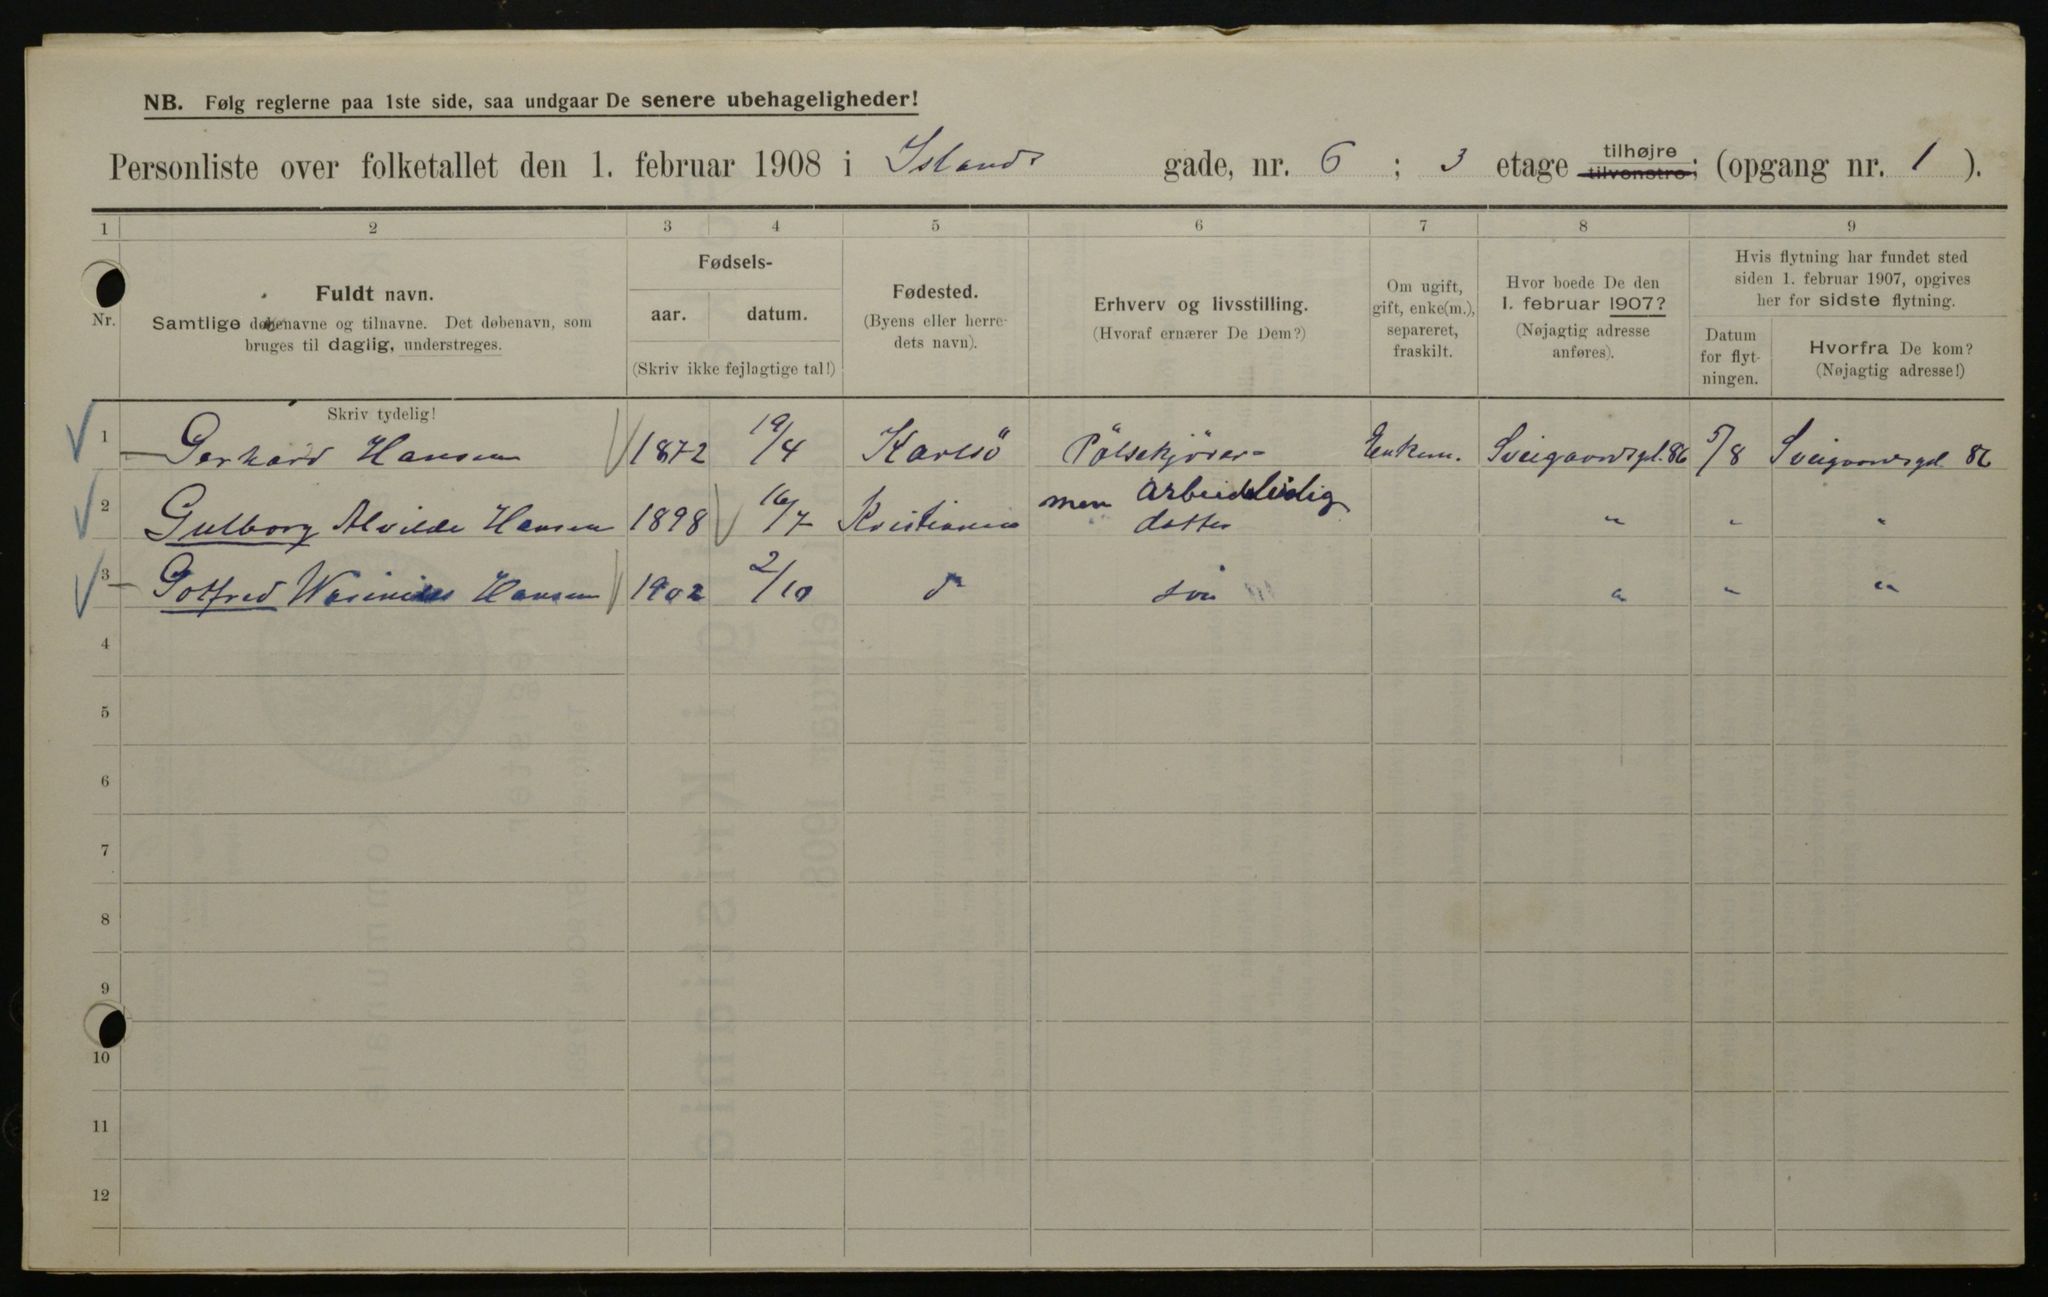 NB. Følg reglerne paa 1ste side, saa undgaar De senere ubehageligheder!
Personliste over folketallet den 1. februar 1908 i Islands gade, nr. 6 ; 3 etage tilhøjre tilvenstre; (opgang nr. 1 ).
1 2 3 4 5 6 7 8 9
Nr.
Fuldt navn.
Samtlige døbenavne og tilnavne. Det døbenavn, som
bruges til daglig, understreges.
Skriv tydelig!
Fødsels-
aar. datum.
(Skriv ikke fejlagtige tal!)
Fødested.
(Byens eller herre-
dets navn).
Erhverv og livsstilling.
(Hvoraf ernærer De Dem?)
Om ugift,
gift, enke(m.),
separeret,
fraskilt.
Hvor boede De den
1. februar 1907?
(Nøjagtig adresse
anføres).
Hvis flytning har fundet sted
siden 1. februar 1907, opgives
her for sidste flytning.
Datum
for flyt-
ningen.
Hvorfra De kom?
(Nøjagtig adresse!)
1 Gerhard Hansen 1872 19/4 Karlsö Pölsekjører- Enkem. Sveigaardsgd. 86 5/8 Sveigaardsgd. 86
men arbeidsledig
2 Gulborg Alvilde Hansen 1898 16/7 Kristiania datter " " "
3 Gotfred Hansen 1902 2/10 do sön " " "
4
5
6
7
8
9
10
11
12